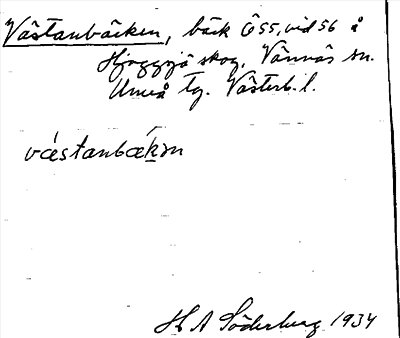 Västanbäcken, bäck Ö 55, vid 56 å
skog, Vännäs sn.
Umeå tg. Västerb. l.
västanbækɘn
H A Söderberg 1934